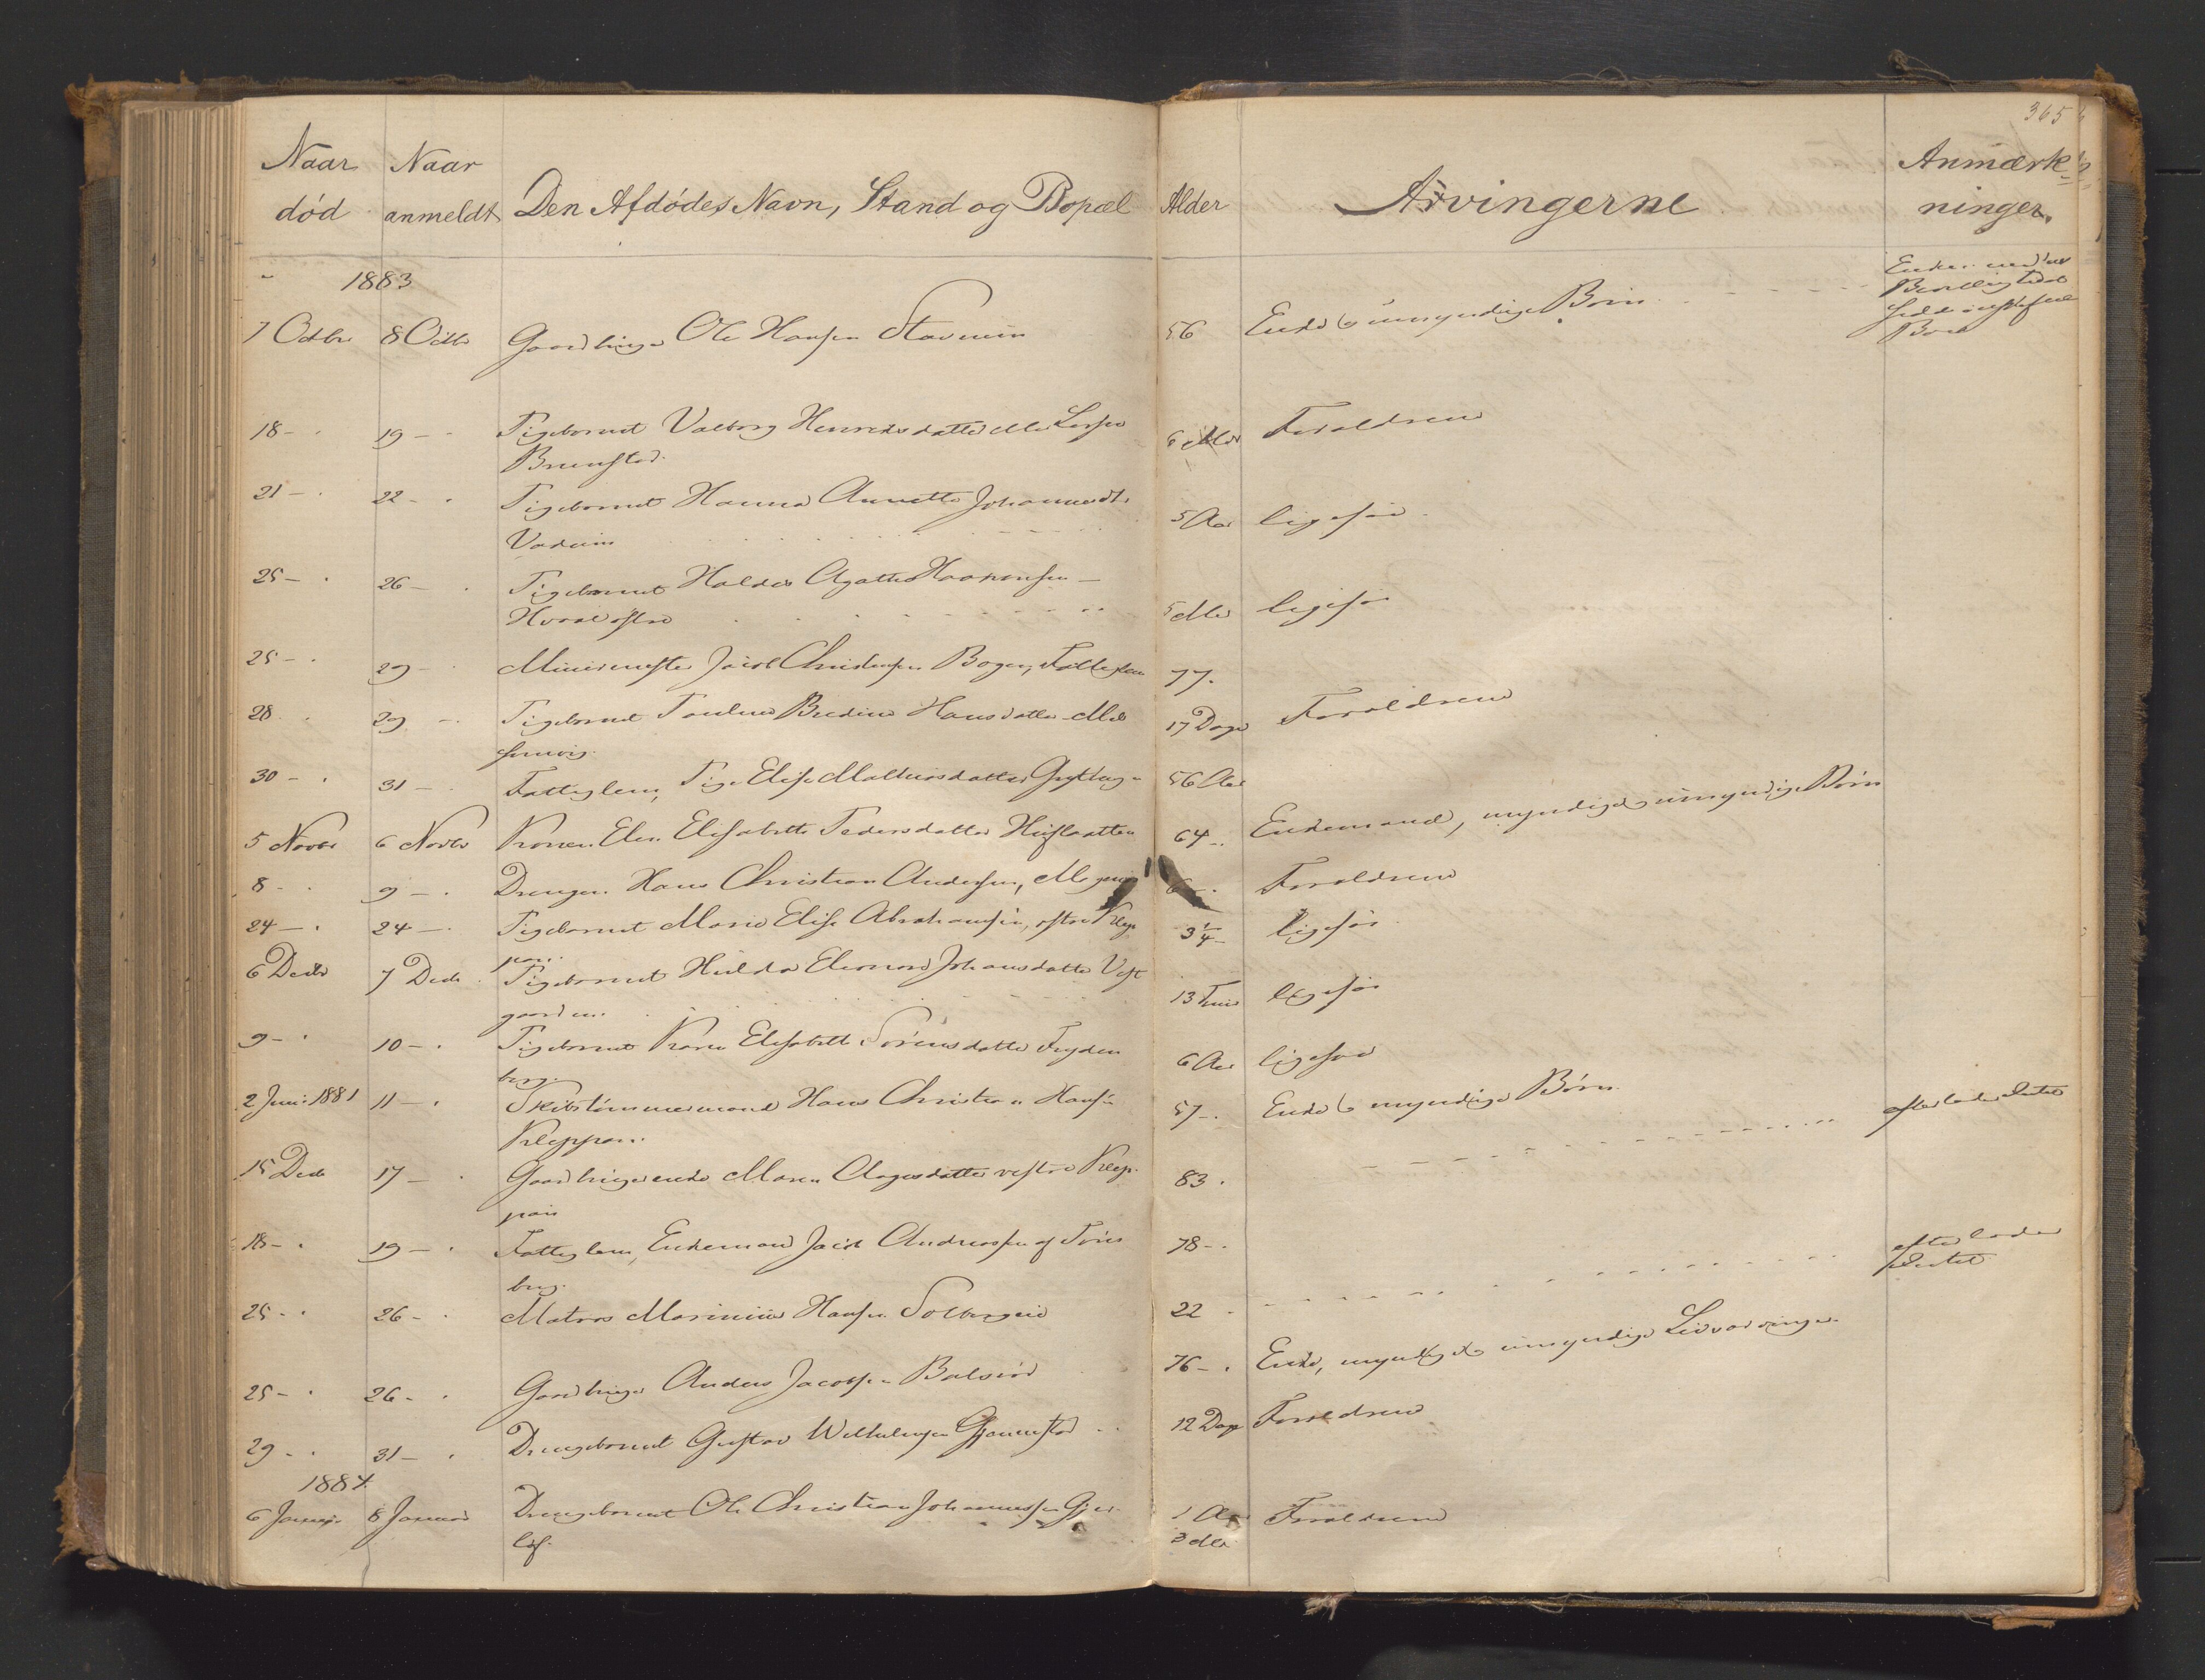 365
Naar død
Naar anmeldt
Den Afdödes Navn, Stand og Bopæl
Alder
Arvingerne
Anmærkninger.
1883
7 Octbr 8 Octbr Gaardbruger Ole Hansen Stavnum 56 Enke & umyndige Börn
Bevilling til at
Bo
18 - 19 - Pigebarnet Valborg Henriksdatter
6 Mdr Forældrene
21 - 22 - Pigebarnet Hanna Annette Johannesdtr
Vadum 5 Aar ligesaa
25 - 26 - Pigebarnet Agathe Haakensen
5 Mdr ligesaa
25 - 29 - Jacob Christensen Bogen, Fattiglem 77.
28 - 29 - Pigebarnet Bredine Hansdatter Mel
somvig. 17 Dage Forældrene
30 - 31 - Fattiglem, Pige Elise Mathiasdatter 56 Aar
5 Novbr 6 Novbr Konen Elen Elisabeth Pedersdatter 64 - Enkemand, myndige & umyndige Börn
8 - 9 - Drengen Hans Christian Andersen, 6 - Forældrene
24 - 24 - Pigebarnet Marie Elise Abrahamsen, östre Klep
pan. 3 1/4 - ligesaa
6 Decbr 7 Decbr Pigebarnet Hulda Elenore Johansdatter Vest
gaarden. 13 Timer ligesaa
9 - 10 - Pigebarnet Karen Elisabeth Sörensdatter Fryden
berg. 6 Aar ligesaa
2 Juni 1881 11 - Skibstömmermand Hans Christian Hansen
Kleppan. 57 - Enke & myndige Börn efterlader Intet
15 Decbr 17 - Gaardbrugerenke Maren Aagesdatter vestre Klep
pan 83.
18 - 19 - Fattiglem, Enkemand Jacob Andreassen af Töns
berg. 78 - efterlader
Intet
25 - 26 - Matros Marinius Hansen Solbergeid 22 -
25 - 26 - Gaardbruger Anders Jacobsen Balsröd 76 - Enke, myndige & umyndige Livsarvinger
29 - 31 - Drengebarnet Gustav Wilhelmsen Gjennestad 12 Dage Forældrene
1884
6 Januar 8 Januar Drengebarnet Ole Christian Johannessen Gjer
löf. 1 Aar Forældrene
3 Mdr